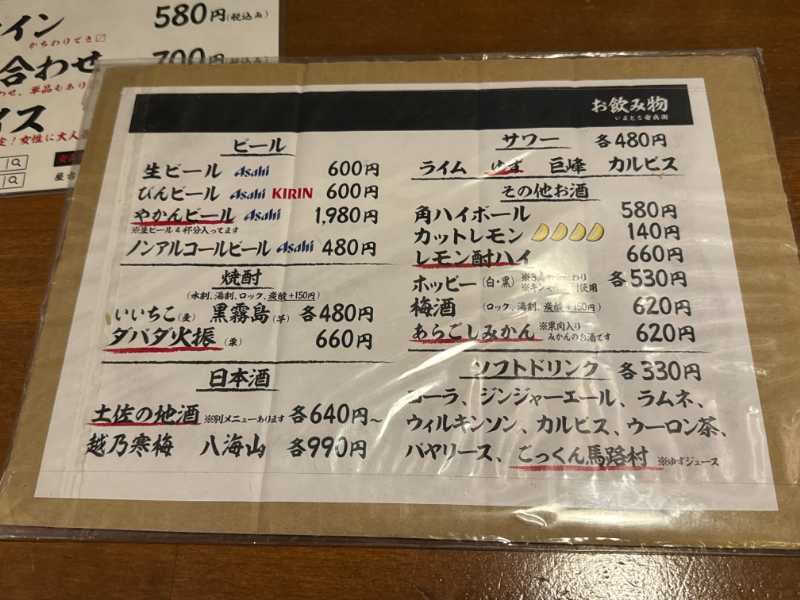 イン 580円(税込み)
かちわりでき〼
合わせ 700円(税込み)
イス
お飲み物
ビール
生ビール Asahi 600円
びんビール Asahi KIRIN 600円
やかんビール Asahi 1,980円
※生ビール4杯分入ってます
ノンアルコールビール Asahi 480円
焼酎
(水割、湯割、ロック、炭酸+150円)
いいちこ(麦) 黒霧島(芋) 各480円
ダバダ火振(栗) 660円
日本酒
土佐の地酒 ※別メニューあります 各640円~
越乃寒梅 八海山 各990円
サワー 各480円
ライム ゆず 巨峰 カルピス
その他お酒
角ハイボール 580円
カットレモン 140円
レモン酎ハイ 660円
ホッピー (白・黒) 各530円
梅酒 (ロック、湯割、炭酸+150円) 620円
あらごしみかん ※果肉入り みかんのお酒です 620円
ソフトドリンク 各330円
コーラ、ジンジャーエール、ラムネ、
ウィルキンソン、カルピス、ウーロン茶、
バヤリース、ごっくん馬路村 ※ゆずジュース